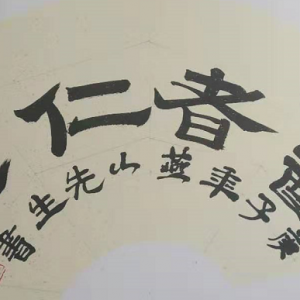 者仁
庚子年燕山先生書